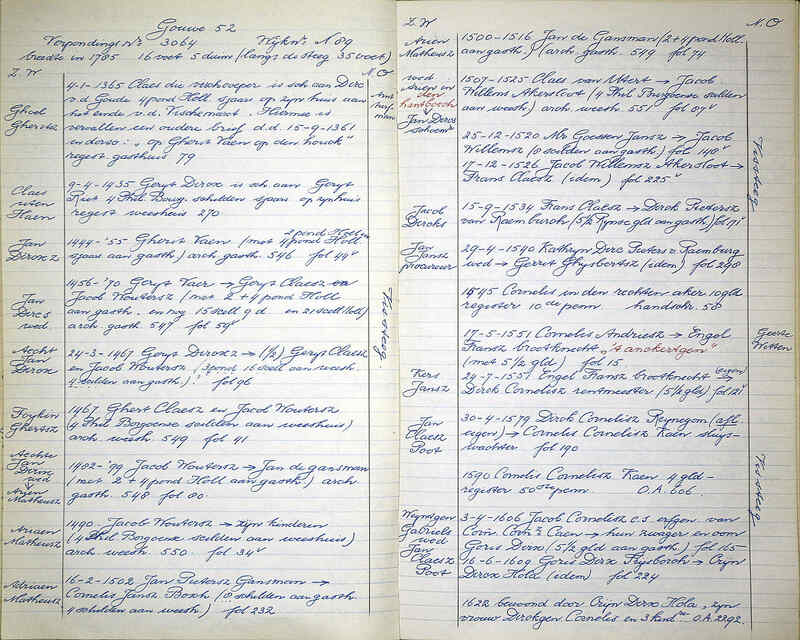 Gouwe 52
Verpondings Nr. 3064 Wijknr. N 89
breedte in 1785 16 voet 5 duim (langs de steeg 35 voet)
Z.W N.O
4-1-1365 Claes die verschoeper is sch. aan Dirc
v.d. Goude 4 pond Holl. sjaars op zijn huis aan
het einde v.d. Vischmarct. Hiermee is
vervallen een oudere brief d.d. 15-9-1361
op Ghert Vaen op den houck"
regest gasthuis 79
Claes
uten
Haen
9-4-1435 Geryt Dircx is sch. aan Geryt
Riet 4 Phil. Bourg. schilden sjaars op zijn huis
regest weeshuis 270
Jan
Dircxz
2 pond Holl. en
1449-'55 Gherit Vaen (met 4 pond Holl.
sjaars aan gasth.) arch. gasth. 546 fol 44v
Jan
Dircs
wed.
1456-'70 Geryt Vaer → Geryt Claesz en
Jacob Woutersz (met 2+4 pond Holl.
aan gasth. en nog 15 scell. gd. en 21 scell. Holl.)
arch. gasth. 547 fol 54v
Aecht
Jan
Dircx
24-3-1467 Geryt Dircxz → (1/2) Geryt Claesz
en Jacob Woutersz (3 pond 16 scell. aan weesh.
4 schilden aan gasth.) fol 96
Foykin
Ghertsz
1467 Ghert Claesz en Jacob Woutersz
(4 Phil. Borgoense scilden aan weeshuis)
arch. weesh. 549 fol 41
Aechte
Jan
Dircx
wed
↓
Arien
Matheusz
1482-'99 Jacob Woutersz → Jan de Gansman
(met 2+4 pond Holl. aan gasth.) arch.
gasth. 548 fol 80
Ariaen
Matheusz
1490 Jacob Woutersz → zijn kinderen
(4 Phil. Borgoense scilden aan weeshuis)
arch. weesh. 550 fol 34v
Adriaen
Matheusz
16-2-1502 Jan Pietersz Gansman →
Cornelis Jansz Bosch (8 schilden aan gasth.
4 schilden aan weesh.) fol 232
Z.W N.O
Arien
Matheusz
1500-1516 Jan de Gansman (2+4 pond Holl.
aan gasth.) (arch. gasth. 549 fol 74
1507-1525 Claes van Utert → Jacob
Willems Akersloot (4 Phil. Burgoense scilden
aan weesh.) arch. weesh. 551 fol 87v
Jan Dircs
schoenm.
25-12-1520 Mr. Goessen Jansz → Jacob
Willemsz (8 scilden aan gasth.) fol 148v
17-12-1526 Jacob Willemsz Akersloot →
Frans Claesz (idem) fol 225v
Jacob
Dircks
15-9-1534 Frans Claesz → Dirck Pietersz
van Raemburch (5 1/2 Rynse gld aan gasth.) fol 71v
Jan
Jansz
procureur
29-4-1540 Kathryn Dirc Pieters v. Raemburg
wed → Gerret Ghysbertsz (idem) fol 298
1545 Cornelis in den rechten aker 10 gld
register 10de penn. handschr. 58
17-5-1551 Cornelis Andriesz → Engel
Fransz brootknecht „'t anckertgen"
(met 5 1/2 gld) fol 15
Geerte
Witten
Kers
Jansz
24-7-1551 Engel Fransz brootknecht (eigen) →
Dirck Cornelisz rentmeester (5 1/2 gld) fol 21v
Jan
Claesz
Poot
30-4-1579 Dirck Cornelisz Reynegom (afl.
eigen) → Cornelis Cornelisz Kaen sluys-
wachter fol 190
1590 Cornelis Cornelisz Kaen 4 gld –
register 50ste penn. O.A. 606
Weyntgen
Gabriels
wed
Jan
Claesz
Poot
3-4-1606 Jacob Cornelisz c.s. erfgen. van
Corn. Corn.s Caen → hun zwager en oom
Goris Dircx (5 1/2 gld aan gasth.) fol 165
16-6-1609 Goris Dircx Flysborch → Cryn
Dircx Hola (idem) fol 224
1622 bewoond door Crijn Dircx Hola, zijn
vrouw Dirckgen Cornelis en 3 kind. O.A. 2292.